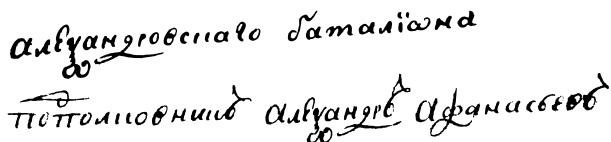 алеѯандровскаго баталїона
подполковникъ алеѯандръ афанасьевъ